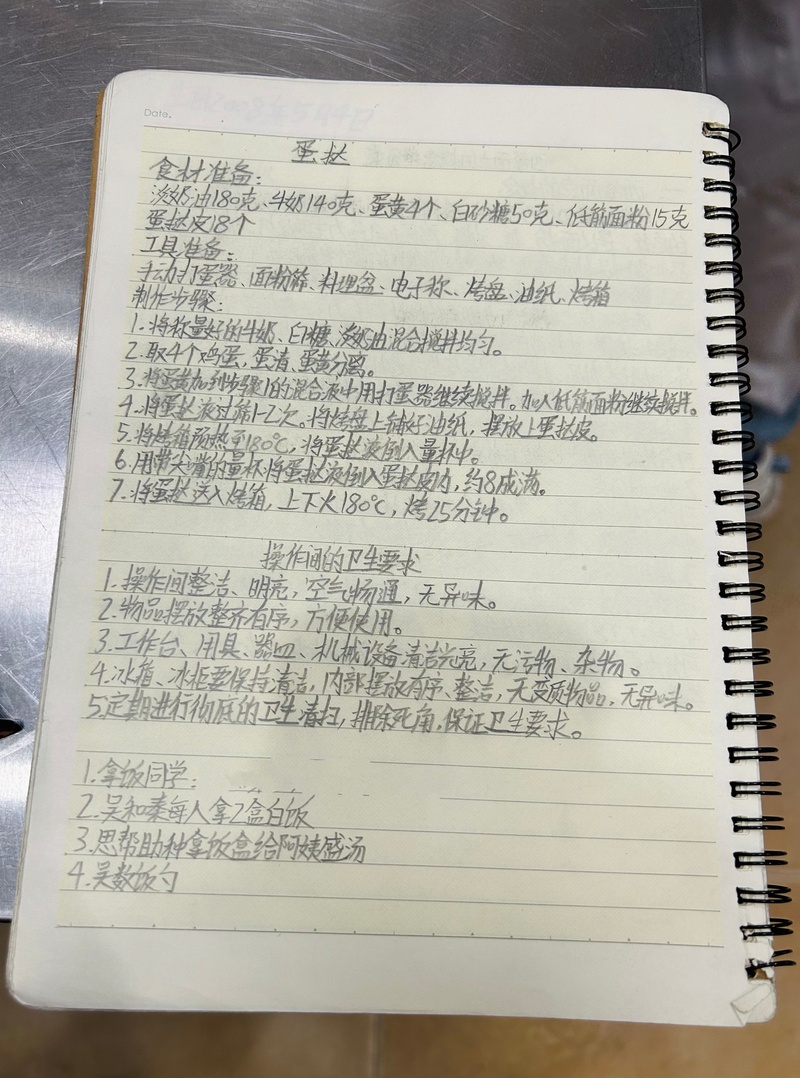 Date.
蛋挞
食材准备：
淡奶油180克、牛奶140克、蛋黄4个、白砂糖50克、低筋面粉15克
蛋挞皮18个
工具准备：
手动打蛋器、面粉筛、料理盆、电子称、烤盘、油纸、烤箱
制作步骤：
1.将称量好的牛奶、白糖、淡奶油混合搅拌均匀。
2.取4个鸡蛋，蛋清、蛋黄分离。
3.将蛋黄加到步骤1的混合液中用打蛋器继续搅拌。加入低筋面粉继续搅拌。
4.将蛋挞液过筛1-2次。将烤盘上铺好油纸，摆放上蛋挞皮。
5.将烤箱预热至180℃，将蛋挞液倒入量杯中。
6.用带尖嘴的量杯将蛋挞液倒入蛋挞皮内，约8成满。
7.将蛋挞送入烤箱，上下火180℃，烤25分钟。
操作间的卫生要求
1.操作间整洁、明亮，空气畅通，无异味。
2.物品摆放整齐有序，方便使用。
3.工作台、用具、器皿、机械设备清洁光亮，无污物、杂物。
4.冰箱、冰柜要保持清洁，内部摆放有序、整洁，无变质物品，无异味。
5.定期进行彻底的卫生清扫，排除死角，保证卫生要求。
1.拿饭同学：
2.吴和秦每人拿2盒白饭
3.思帮助种拿饭盒给阿姨盛汤
4.吴数饭勺